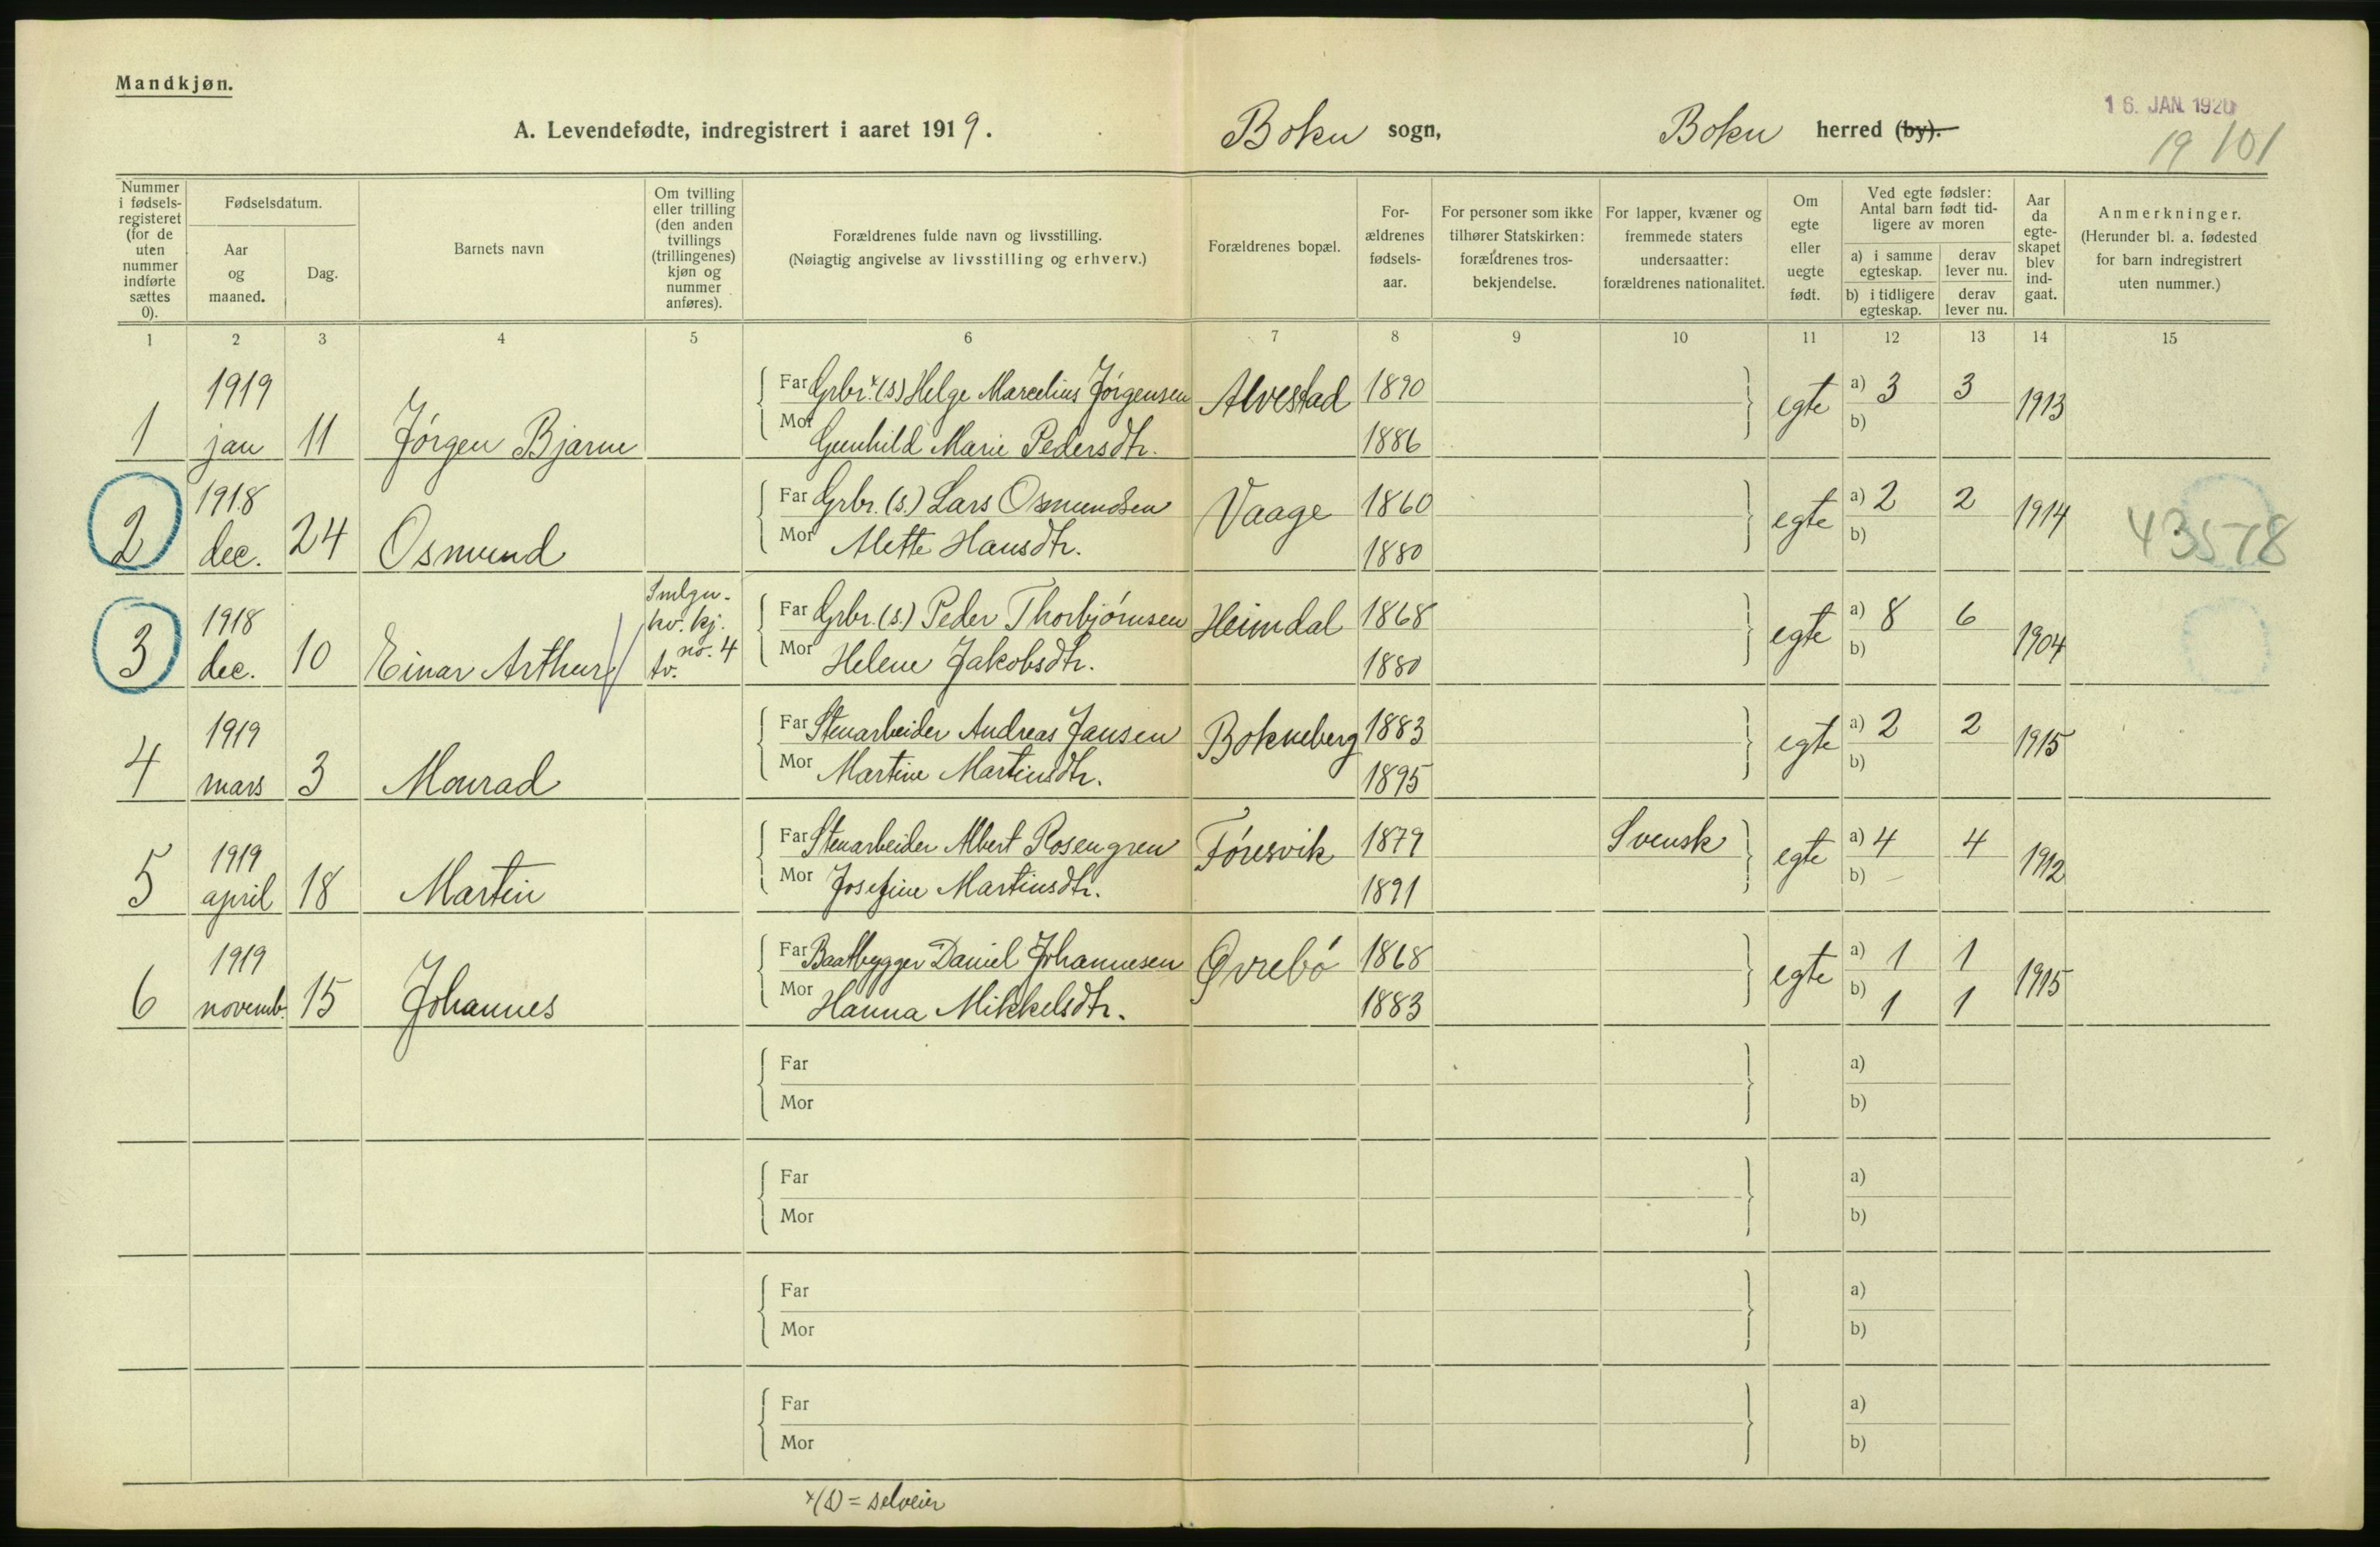 Mandkjøn.
16. JAN. 1920
A. Levendefødte, indregistrert i aaret 1919.
Bokn sogn,
Bokn herred (by).
19 101
Nummer i fødsels-registeret (for de uten nummer indførte sættes 0).
Fødselsdatum.
Aar og maaned.
Dag.
Barnets navn
Om tvilling eller trilling (den anden tvillings (trillingenes) kjøn og nummer anføres).
Forældrenes fulde navn og livsstilling.
(Nøiagtig angivelse av livsstilling og erhverv.)
Forældrenes bopæl.
For-ældrenes fødsels-aar.
For personer som ikke tilhører Statskirken: forældrenes tros-bekjendelse.
For lapper, kvæner og fremmede staters undersaatter: forældrenes nationalitet.
Om egte eller uegte født.
Ved egte fødsler: Antal barn født tid-ligere av moren
a) i samme egteskap.
derav lever nu.
b) i tidligere egteskap.
derav lever nu.
Aar da egte-skapet blev ind-gaat.
Anmerkninger.
(Herunder bl. a. fødested for barn indregistrert uten nummer.)
1 2 3 4 5 6 7 8 9 10 11 12 13 14 15
1 1919 jan 11 Jørgen Bjarne
Far Grbr.x (s) Helge Marcelius Jørgensen Alvestad 1890 egte a) 3 3 1913
Mor Gunhild Marie Pedersdtr. 1886 b)
2 1918 dec. 24 Osmund
Far Grbr. (s.) Lars Osmundsen Vaage 1860 egte a) 2 2 1914 43578
Mor Mette Hansdtr. 1880 b)
3 1918 dec. 10 Einar Arthur
Smlgn. kv. kj. no. 4 tv.
Far Grbr. (s.) Peder Thorbjørnsen Heimdal 1868 egte a) 8 6 1904
Mor Helene Jakobsdtr. 1880 b)
4 1919 mars 3 Monrad
Far Stenarbeider Andreas Jansen Bokneberg 1883 egte a) 2 2 1915
Mor Martine Martinsdtr. 1895 b)
5 1919 april 18 Martin
Far Stenarbeider Albert Rosengren Føresvik 1879 Svensk egte a) 4 4 1912
Mor Josefine Martinsdtr. 1891 b)
6 1919 novemb. 15 Johannes
Far Baatbygger Daniel Johannesen Øvrebø 1868 egte a) 1 1 1915
Mor Hanna Mikkelsdtr. 1883 b) 1 1
Far a)
Mor b)
Far a)
Mor b)
Far a)
Mor b)
Far a)
Mor b)
x(s) = selveier